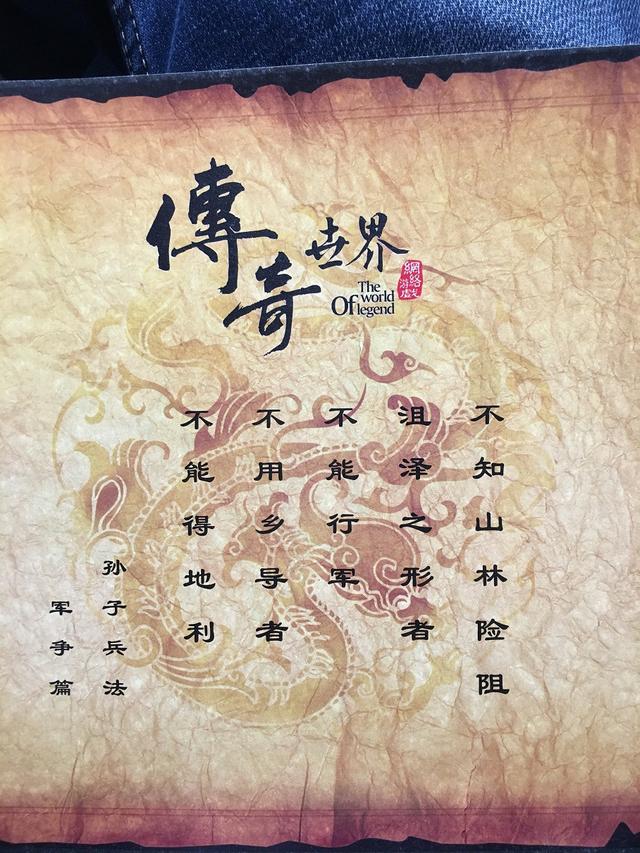 傳奇世界
The world
Of legend
網絡游戲
不知山林险阻
沮泽之形者
不能行军
不用乡导者
不能得地利
孙子兵法
军争篇